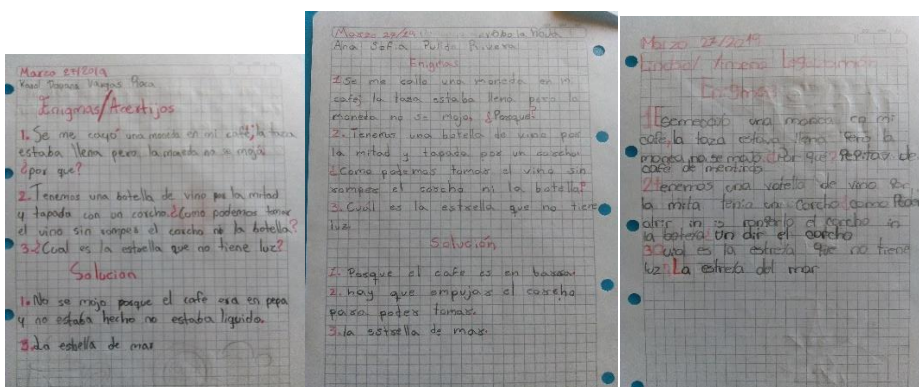 Marzo 27/2019
Vargas
Enigmas/Acertijos
1. Se me cayó una moneda en mi café, la taza
estaba llena pero, la moneda no se moja
¿por que?
2. Tenemos una botella de vino por la mitad
y tapada con un corcho ¿Como podemos tomar
el vino sin romper el corcho ni la botella?
3. ¿Cual es la estrella que no tiene luz?
Solucion
1. No se mojo porque el café era en pepa
y no estaba hecho no estaba liquida.
3. La estrella de mar
Marzo
Ana Sofia Pulido Rivera
Enigmas
1. Se me callo una moneda en mi
café, la taza estaba llena pero la
moneda no se mojo ¿Porque?
2. Tenemos una botella de vino por
la mitad y tapada por un corcho.
¿Como podemos tomar el vino sin
romper el corcho ni la botella?
3. Cual es la estrella que no tiene
luz.
Solución
1. Porque el cafe es en
2. hay que empujar el corcho
para poder tomar.
3. la estrella de mar.
Marzo 27/2019
1 mi
café, la taza estava llena pero la
no se mojo. ¿Por que? Pepitas de
café de mentiras
2 tenemos una votella de vino por
la mita tenia un corcho
el corcho
la
3 Cual es la estrela que no tiene
luz. La estrela del mar